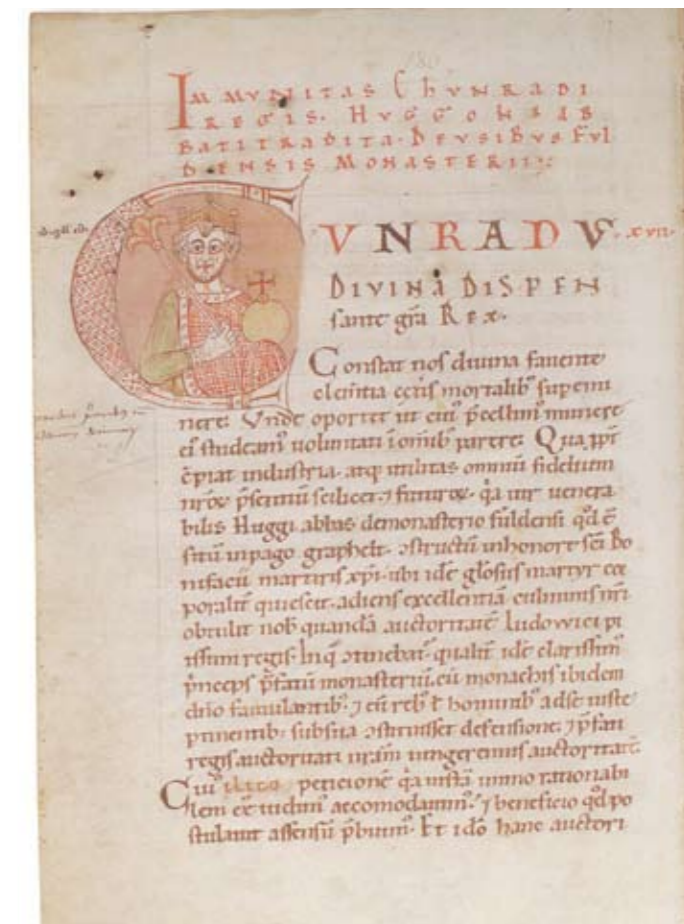 IMMUNITAS CHUNRADI
REGIS. HUGGONI AB
BATI TRADITA. DEUSIBUS FUL
DENSIS MONASTERII
UNRADUS xvii.
DIVINA DISPEN
sante gr̄a Rex.
Constat nos divina favente
clem̄tia ceteris mortalib; supemi
nere. Unde oportet ut eiuſ p̄cellim; munere
ei; studeam; voluntati ī omīb; parere. Qua
industria. atq; utilitas omniū fidelium
nr̄oꝝ p̄sentiū scilicet. ⁊ futuroꝝ. q̄a vir venera
bilis Huggi abbas de monasterio fuldensi qd̄ ē
sitū in pago graphelt. ꝯstructū in honore sc̄i Bo
nifacii martiris xp̄i. ubi idē gl̄osus martyr cor
poralit̄ quiescit. adiens excellentiā culminis nr̄i
obtulit nob̄ quandā auctoritatē Ludowici pi
issimi regis. In q̄ ꝯtinebat̄. qualit̄ idē clarissim;
p̄nceps p̄fatū monasteriū. cū monachis ibidem
dn̄o famulantib;. ⁊ cū reb; ł hominib; ad se iuste
p̄tinentib; sub sua ꝯstituisset defensione. ⁊ p̄fati
regis auctoritati nr̄am iungeremus auctoritatē.
Cui; peticionē q̄a iustā immo rationabi
lem ēē accomodavim;. ⁊ beneficio qd̄ po
stulavit assensū p̄buim;. Et idō hanc auctori